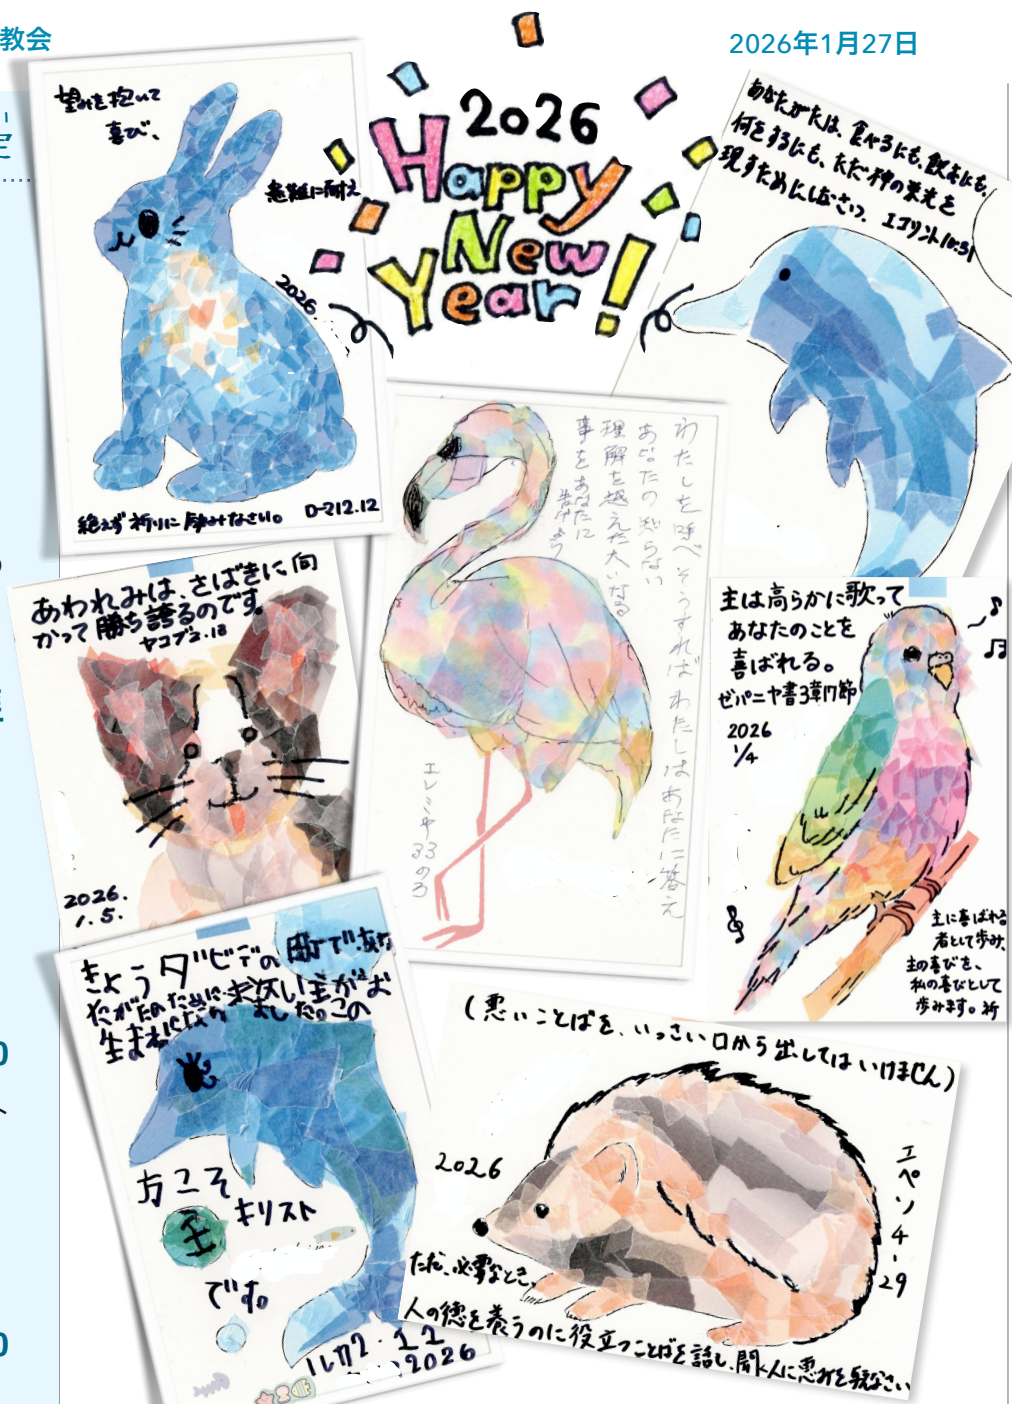 教会
2026年1月27日
定
2026
Happy
New
Year!
望みを抱いて
喜び、
患難に耐え
2026
絶えず祈りに励みなさい。 ローマ12.12
あなたがたは、食べるにも、飲むにも、
何をするにも、ただ神の栄光を
現すためにしなさい。 Iコリント10:31
わたしを呼べ そうすれば わたしは あなたに答え
あなたの知らない
理解を越えた大いなる
事をあなたに
告げよう
エレミヤ33の3
あわれみは、さばきに向
かって勝ち誇るのです。
ヤコブ2.13
2026.
1.5.
主は高らかに歌って
あなたのことを
喜ばれる。
ゼパニヤ書3章17節
2026
1/4
主に喜ばれる
者として歩み、
主の喜びを、
私の喜びとして
歩みます。祈
きょうダビデの町で、あな
たがたのために、救い主がお
生まれになりました。この
方こそ
主キリスト
です。
ルカ2.11
2026
(悪いことばを、いっさい口から出してはいけません)
2026
エペソ4-29
ただ、必要なとき、
人の徳を養うのに役立つことばを話し、聞く人に恵みを与えなさい
0
0